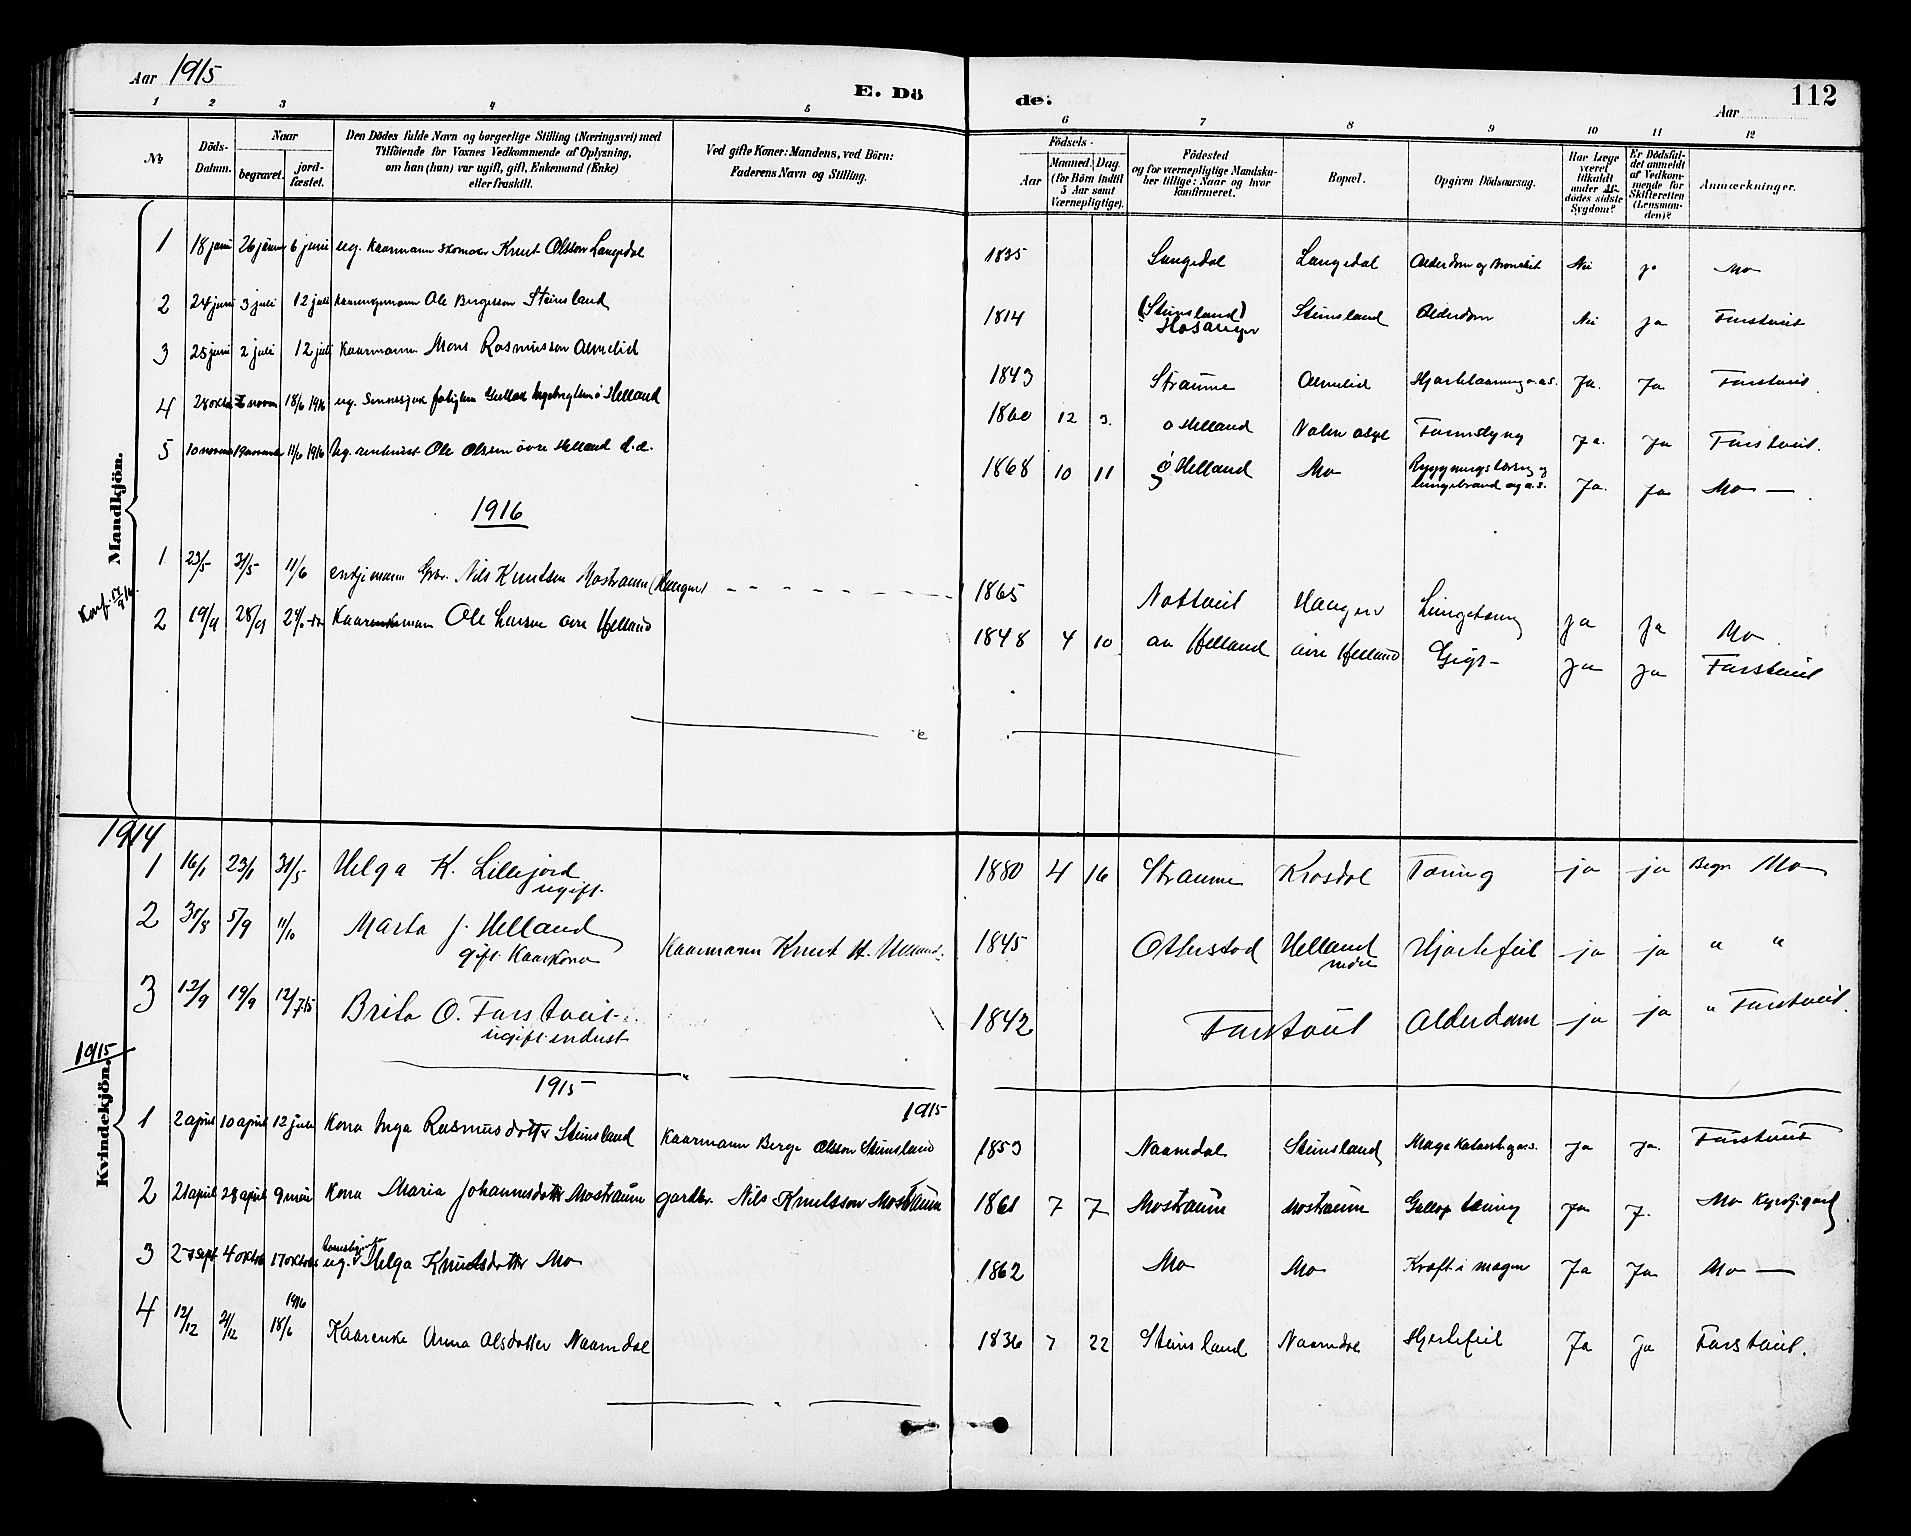 Aar 1915
E. Dö
de.
Aar
112
1 2 3 4 5 6 7 8 9 10 11 12
No
Döds-Datum.
Naar
begravet.
jord-fæstet.
Den Dödes fulde Navn og borgerlige Stilling (Næringsvei) med
Tilföiende for Voxnes Vedkommende af Oplysning,
om han (hun) var ugift, gift, Enkemand (Enke)
eller fraskilt.
Ved gifte Koner: Mandens, ved Börn:
Faderens Navn og Stilling.
Födsels-
Aar
Maaned. Dag.
(for Börn indtil
5 Aar samt
Værnepligtige).
Födested
og for værnepligtige Mandska-
ber tillige: Naar og hvor
konfirmeret.
Bopæl.
Opgiven Dödsaarsag.
Har Læge
været
tilkaldt
under Af-
dödes sidste
Sygdom?
Er Dödsfal-
det anmeldt
af Vedkom-
mende for
Skifteretten
(Lensman-
den)?
Anmærkninger.
Mandkjön.
1 18 juni 26 juni 6 juni ug. Kaarmann skomaker Knut Olsson Langedal 1835 Langedal Langedal Alderdom og Bronchit Nei ja Mo
2 24 juni 3 juli 12 juli Ole Bergesson Steinsland 1814 (Steinsland) Hosanger Steinsland Alderdom Nei ja Farstveit
3 25 juni 2 juli 12 juli Kaarmann Mons Rasmusson Almelid 1843 Straume Almelid a.s. Ja. Ja Farstveit
4 28 oktbr novm 18/6 1916 ug. Helland 1860 12 3. ö Helland Ja. Ja Farstveit.
5 10 novem 19 novem 11/6 1916 Ug. Ole Olssen övre Helland d.e. 1868 10 11 ö Helland Mo og lungebrand og a.s. Ja. Ja Mo —
1916
1 23/5 31/5 11/6 enkjemann Gbr. Nils Knutsen Mostraum (Haugen) 1865 Notveit Haugen Lungetæring ja ja Mo
2 19/9 28/9 Kaarmann Ole Larsen övre Helland 1848 4 10 Helland övre Helland Gigt- ja ja Farstveit
1914
1 16/1 23/1 31/5 Helga K. Lillejord 1880 4 16 Straume Krosdal Tæring ja ja Begr. Mo
ugift.
2 31/8 5/9 11/10 Marta J. Helland Kaarmann Knut H. Helland. 1845 Otterstad Helland nedre Hjertefeil ja ja " "
gift. Kaarkona
3 12/9 19/9 12/7.15 Brita O. Farstveit 1842 Farstveit Alderdom ja ja " Farstveit.
ugift indust
1915
Kvindekjön.
1915
1915
1 2 april 10 april 12 juli Kona Inga Rasmusdotter Steinsland Kaarmann Berge Olsson Steinsland 1853 Naamdal Steinsland Magekatarrh og a.s. ja ja. Farstveit
2 21 april 28 april 9 mai Kona Maria Johannesdotter Mostraum gardbr. Nils Knutsson Mostraum 1861 7 7 Mostraum Mostraum Gallop tæring ja j. Mo Kyrkjigard
3 4 oktbr 17 oktober ug. Helga Knutsdotter Mo 1862 Mo Mo Kræft i magen Ja Ja Mo —
4 12/12 21/12 1916 18/6 Kaarenke Anna Olsdotter Naamdal 1836 7 22 Steinsland Naamdal Hjertefeil Ja ja Farstveit.